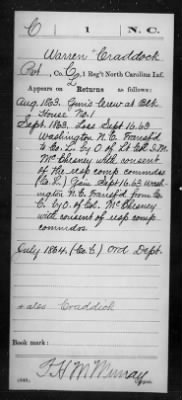 C | 1 | N.C.
Warren Craddock
Pvt., Co. C, 1 Reg't North Carolina Inf.
Appears on Returns as follows:
Aug. 1863. Guns Crew at Blk
House No. 1
Sept. 1863. Loss Sept. 16. 63
Washington N.C. Transf'd
to Co. L. by O. of Lt Col. S.M.
McChesney with consent
of the resp comp. commdrs
(Co. L.) Gain Sept 16. 63 Wash
ington N.C. Transf'd from Co.
C. by O. of Col. McChesney
with consent of resp. comp
commdrs
July 1864. (Co. C) Ord. Dept.
Craddick
Book mark:
F H M Murray